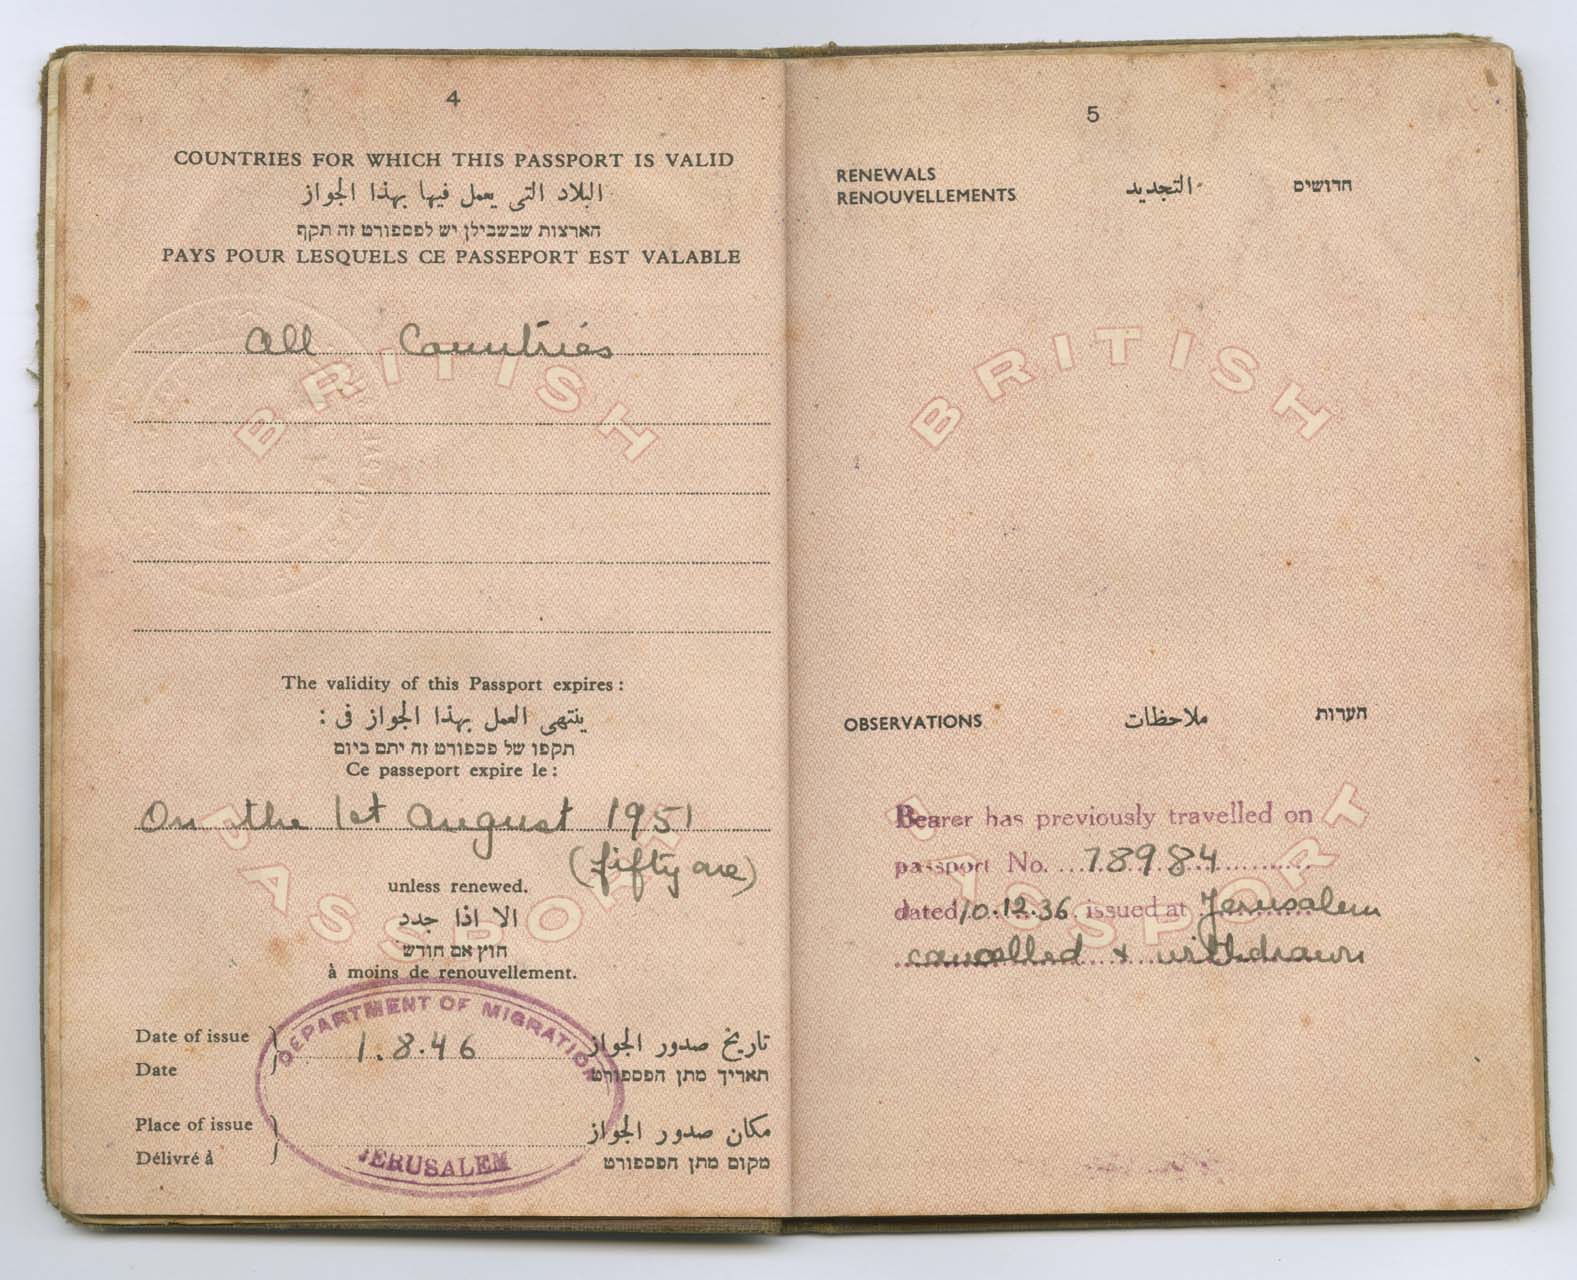 4
COUNTRIES FOR WHICH THIS PASSPORT IS VALID
البلاد التى يعمل فيها بهذا الجواز
הארצות שבשבילן יש לפספורט זה תקף
PAYS POUR LESQUELS CE PASSEPORT EST VALABLE
All Countries
BRITISH
The validity of this Passport expires:
ينتهى العمل بهذا الجواز فى :
תקפו של פספורט זה יתם ביום
Ce passeport expire le:
On the 1st August 1951
(fifty one)
PASSPORT
unless renewed.
الا اذا جدد
חוץ אם חודש
à moins de renouvellement.
DEPARTMENT OF MIGRATION
Date of issue 1.8.46 تاريخ صدور الجواز
Date תאריך מתן הפספורט
Place of issue مكان صدور الجواز
Délivré à JERUSALEM מקום מתן הפספורט
5
RENEWALS
RENOUVELLEMENTS التجديد חדושים
BRITISH
OBSERVATIONS ملاحظات הערות
PASSPORT
Bearer has previously travelled on
passport No. 78984
dated 10.12.36 issued at Jerusalem
cancelled + withdrawn